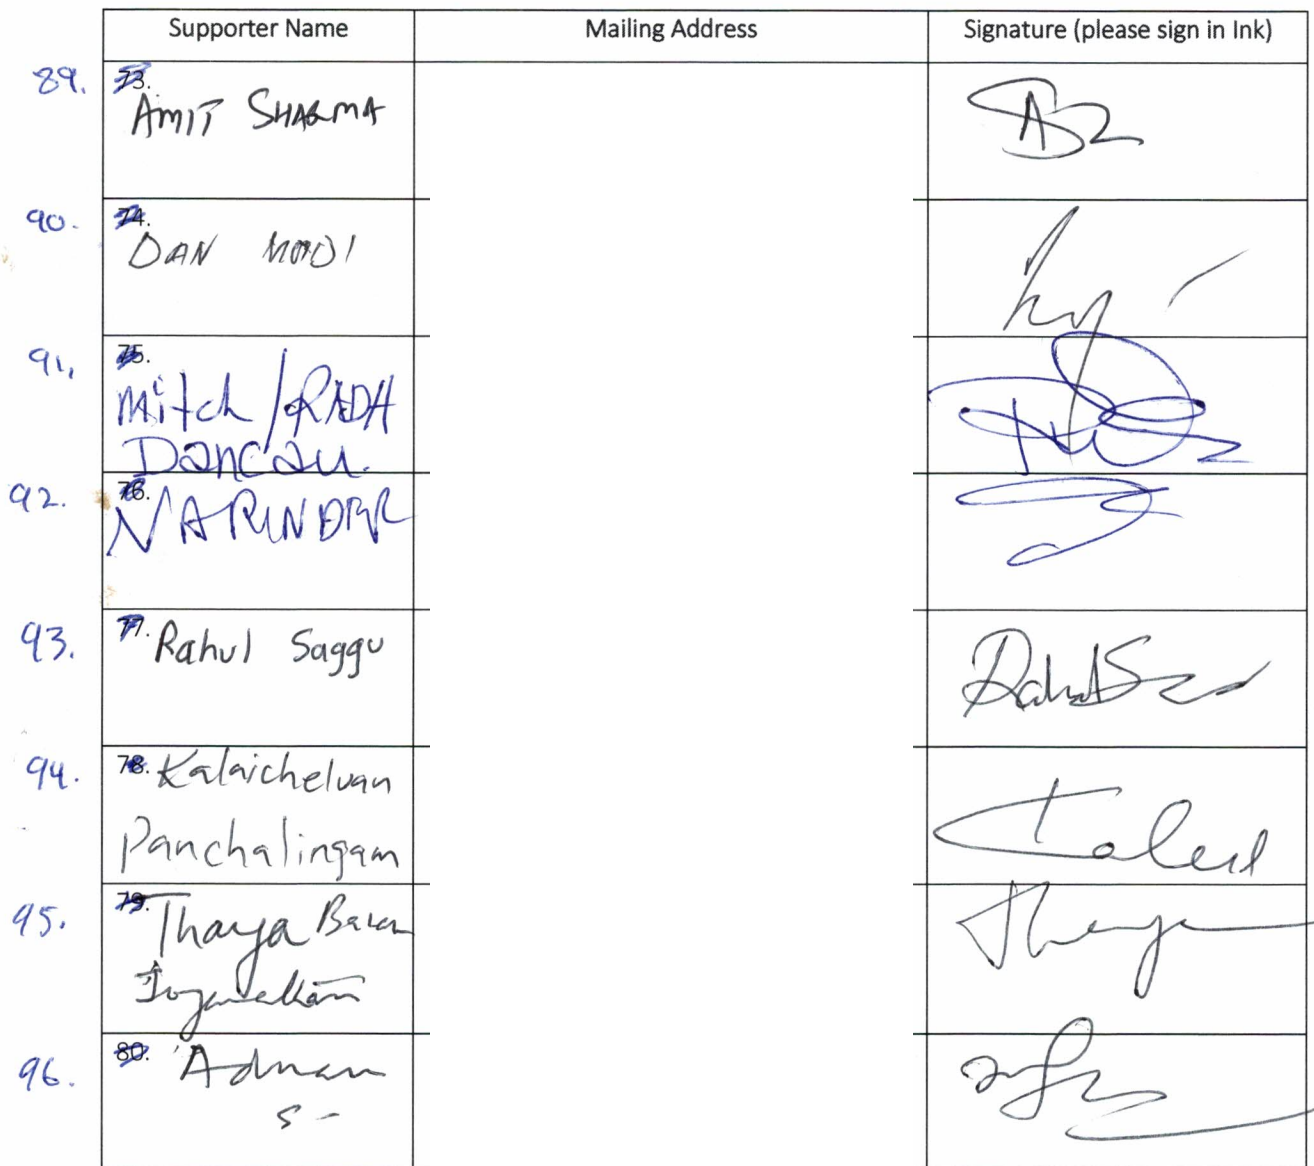 Supporter Name Mailing Address Signature (please sign in Ink)
89. 73.
AMIT SHARMA
90. 74.
DAN MODI
91. 75.
Mitch / RADH
Dancau.
92. 76.
NARINDER
93. 77. Rahul Saggu
94. 78. Kalaichelvan
Panchalingam
95. 79. Tharya
96. 80. Adnan
S -